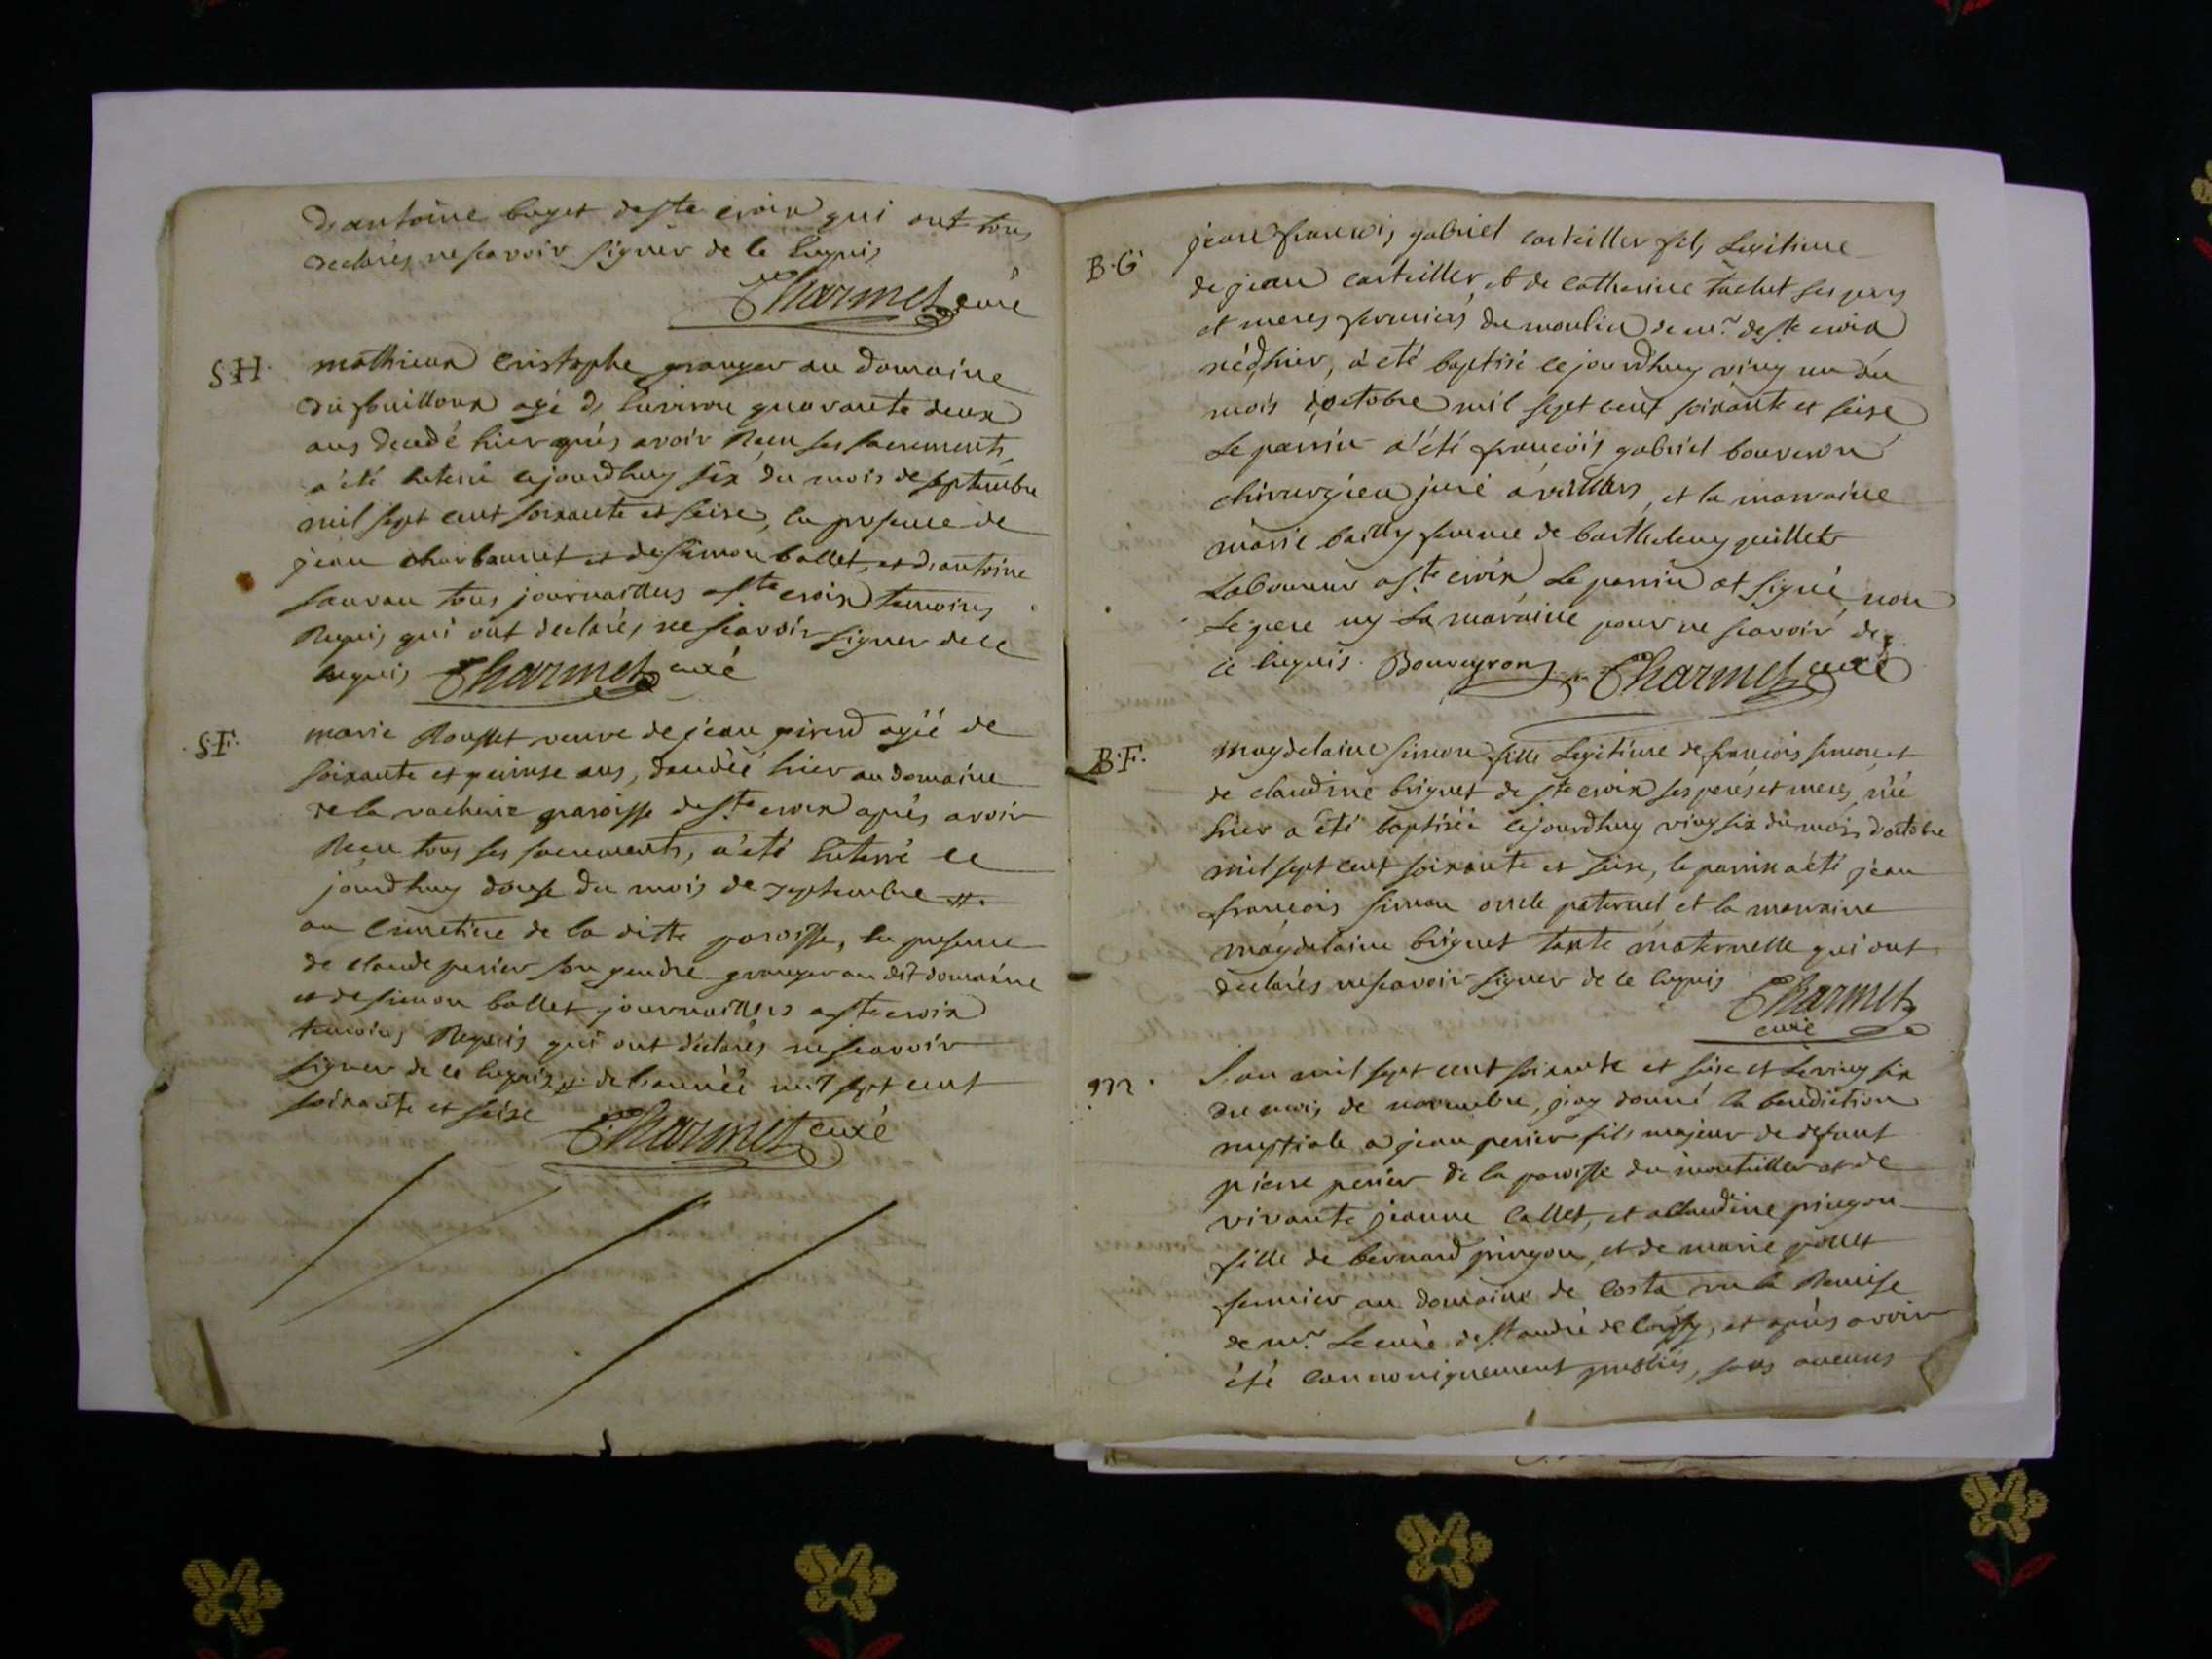 d'antoine buget de ste croix qui ont tous
declarés ne scavoir signer de ce enquis
Charmet curé
SH.
mathieux Cristophe granger au domaine
du fouilloux agé d'environ quarante deux
ans decedé hier aprés avoir Recu ses sacrements,
a été enterré cejourdhuy six du mois de septembre
mil sept cent soixante et seise, en presence de
jean charbonnet et de simon ballet, et d'antoine
sauvau tous journaillers a ste croix temoins
Requis, qui ont declarés ne scavoir signer de ce
enquis Charmet curé
S.F.
marie Rousset veuve de jean girerd agée de
soixante et quinse ans, decedée hier au domaine
de la vacherie paroisse de ste croix aprés avoir
Recu tous ses sacrements, a été enterré ce
jourdhuy douse du mois de septembre #.
au cimetiere de la ditte paroisse, en presence
de claude perier son gendre granger au dit domaine
et de simon ballet journaillers a ste croix
temoins Requis qui ont déclarés ne scavoir
signer de ce enquis #. de l'année mil sept cent
soixante et seise Charmet curé
B.G
jean francois gabriel carteiller fils Legitime
de jean carteiller, et de catherine tachet ses peres
et meres fermiers du moulin de mr. de ste croix
né d'hier, a eté baptisé cejourdhuy ving un du
mois d'octobre mil sept cent soixante et seise
Le parrin a été francois gabriel bouveron
chirurgien juré a villars, et la marraine
marie bailly femme de barthelemy guillet
Laboureur a ste croix Le parrin at signé, non
Le pere ny La maraine pour ne scavoir de
ce enquis. Bouveyron Charmet curé
B.F.
magdelaine simon fille Legitime de françois simon et
de claudine briguet de ste croix ses perés et meres, née
hier a été baptisée cejourdhuy ving six du mois d'octobre
mil sept cent soixante et seise, le parrin a été jean
françois simon oncle paternel et la marraine
magdelaine briguet tante maternelle qui ont
declarés ne scavoir signer de ce enquis Charmet
curé
M.
L'an mil sept cent soixante et seise et Le ving six
du mois de novembre, j'ay donné la benediction
nuptiale a jean perier fils majeur de defunt
pierre perier de la paroisse du montellier et de
vivante jeanne Callet, et a claudine pingon
fille de bernard pingon, et de marie pollet
fermier au domaine de Costa vu la Remise
de mr. Le curé de st. andré de Corsy, et aprés avoir
été cannoniquement publiés, sans aucuns